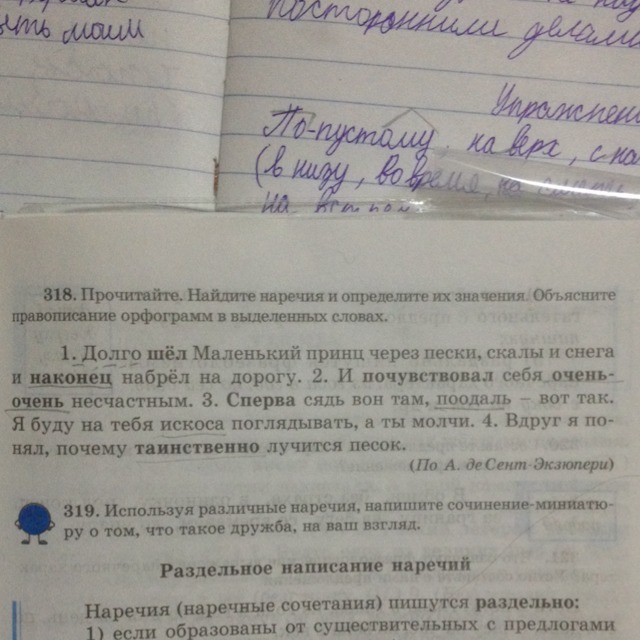 ять моим
посторонними делами
Упражнени
По-пустому, на верх, с на
(в низу, во время, на
318. Прочитайте. Найдите наречия и определите их значения. Объясните
правописание орфограмм в выделенных словах.
1. Долго шёл Маленький принц через пески, скалы и снега
и наконец набрёл на дорогу. 2. И почувствовал себя очень-
очень несчастным. 3. Сперва сядь вон там, поодаль – вот так.
Я буду на тебя искоса поглядывать, а ты молчи. 4. Вдруг я по-
нял, почему таинственно лучится песок.
(По А. де Сент-Экзюпери)
319. Используя различные наречия, напишите сочинение-миниатю-
ру о том, что такое дружба, на ваш взгляд.
Раздельное написание наречий
Наречия (наречные сочетания) пишутся раздельно:
1) если образованы от существительных с предлогами